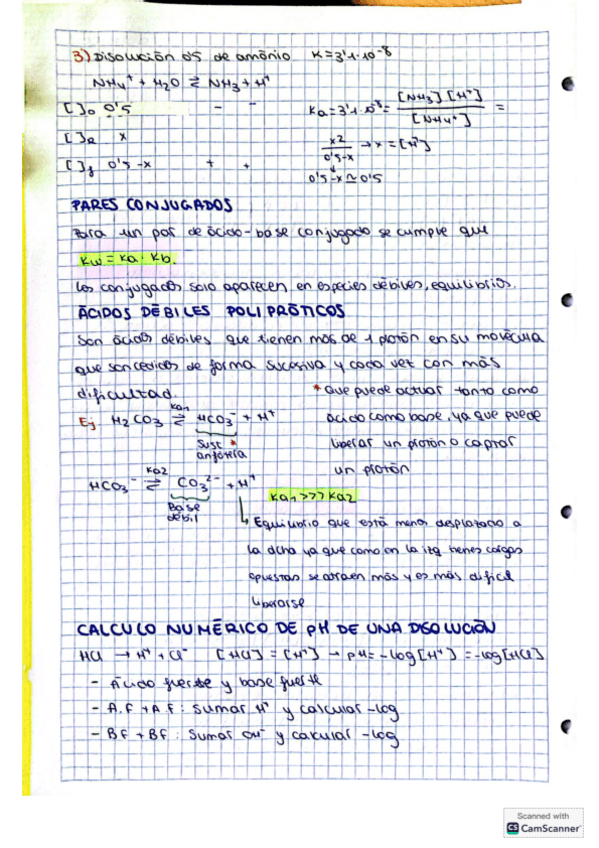 3) Disolución 0'5 de amónio K=3'1·10⁻⁸
NH₄⁺ + H₂O ⇌ NH₃ + H⁺
[ ]₀ 0'5 - -
Ka=3'1·10⁻⁸= [NH₃][H⁺] / [NH₄⁺] =
[ ]R x
x2 / 0'5-x → x = [H⁺]
[ ]f 0'5-x + +
0'5-x ≃ 0'5
PARES CONJUGADOS
Para un par de ácido-base conjugado se cumple que
Kw = Ka · Kb.
Los conjugados solo aparecen en especies débiles, equilibrios.
ÁCIDOS DÉBILES POLIPRÓTICOS
Son ácidos débiles que tienen más de 1 protón en su molécula
que son cedidos de forma sucesiva y cada vez con más
dificultad.
* Que puede actuar tanto como
ácido como base, ya que puede
liberar un protón o captar
un protón
Ej. H₂CO₃ ⇌ Ka1 HCO₃⁻ + H⁺
Sust *
anfótera
HCO₃⁻ ⇌ Ka2 CO₃²⁻ + H⁺
Base
débil
Ka₁ >>> Ka2
↳ Equilibrio que está menos desplazado a
la dcha ya que como en la izq tienes cargas
opuestas se atraen más y es más difícil
liberarse
CALCULO NUMÉRICO DE pH DE UNA DISOLUCIÓN
HCl → H⁺ + Cl⁻ [HCl] = [H⁺] → pH = -log[H⁺] = -log[HCl]
- Ácido fuerte y base fuerte
- A.F + A.F : Sumar H⁺ y calcular -log
- BF + BF : Sumar OH⁻ y calcular -log
Scanned with
CS CamScanner